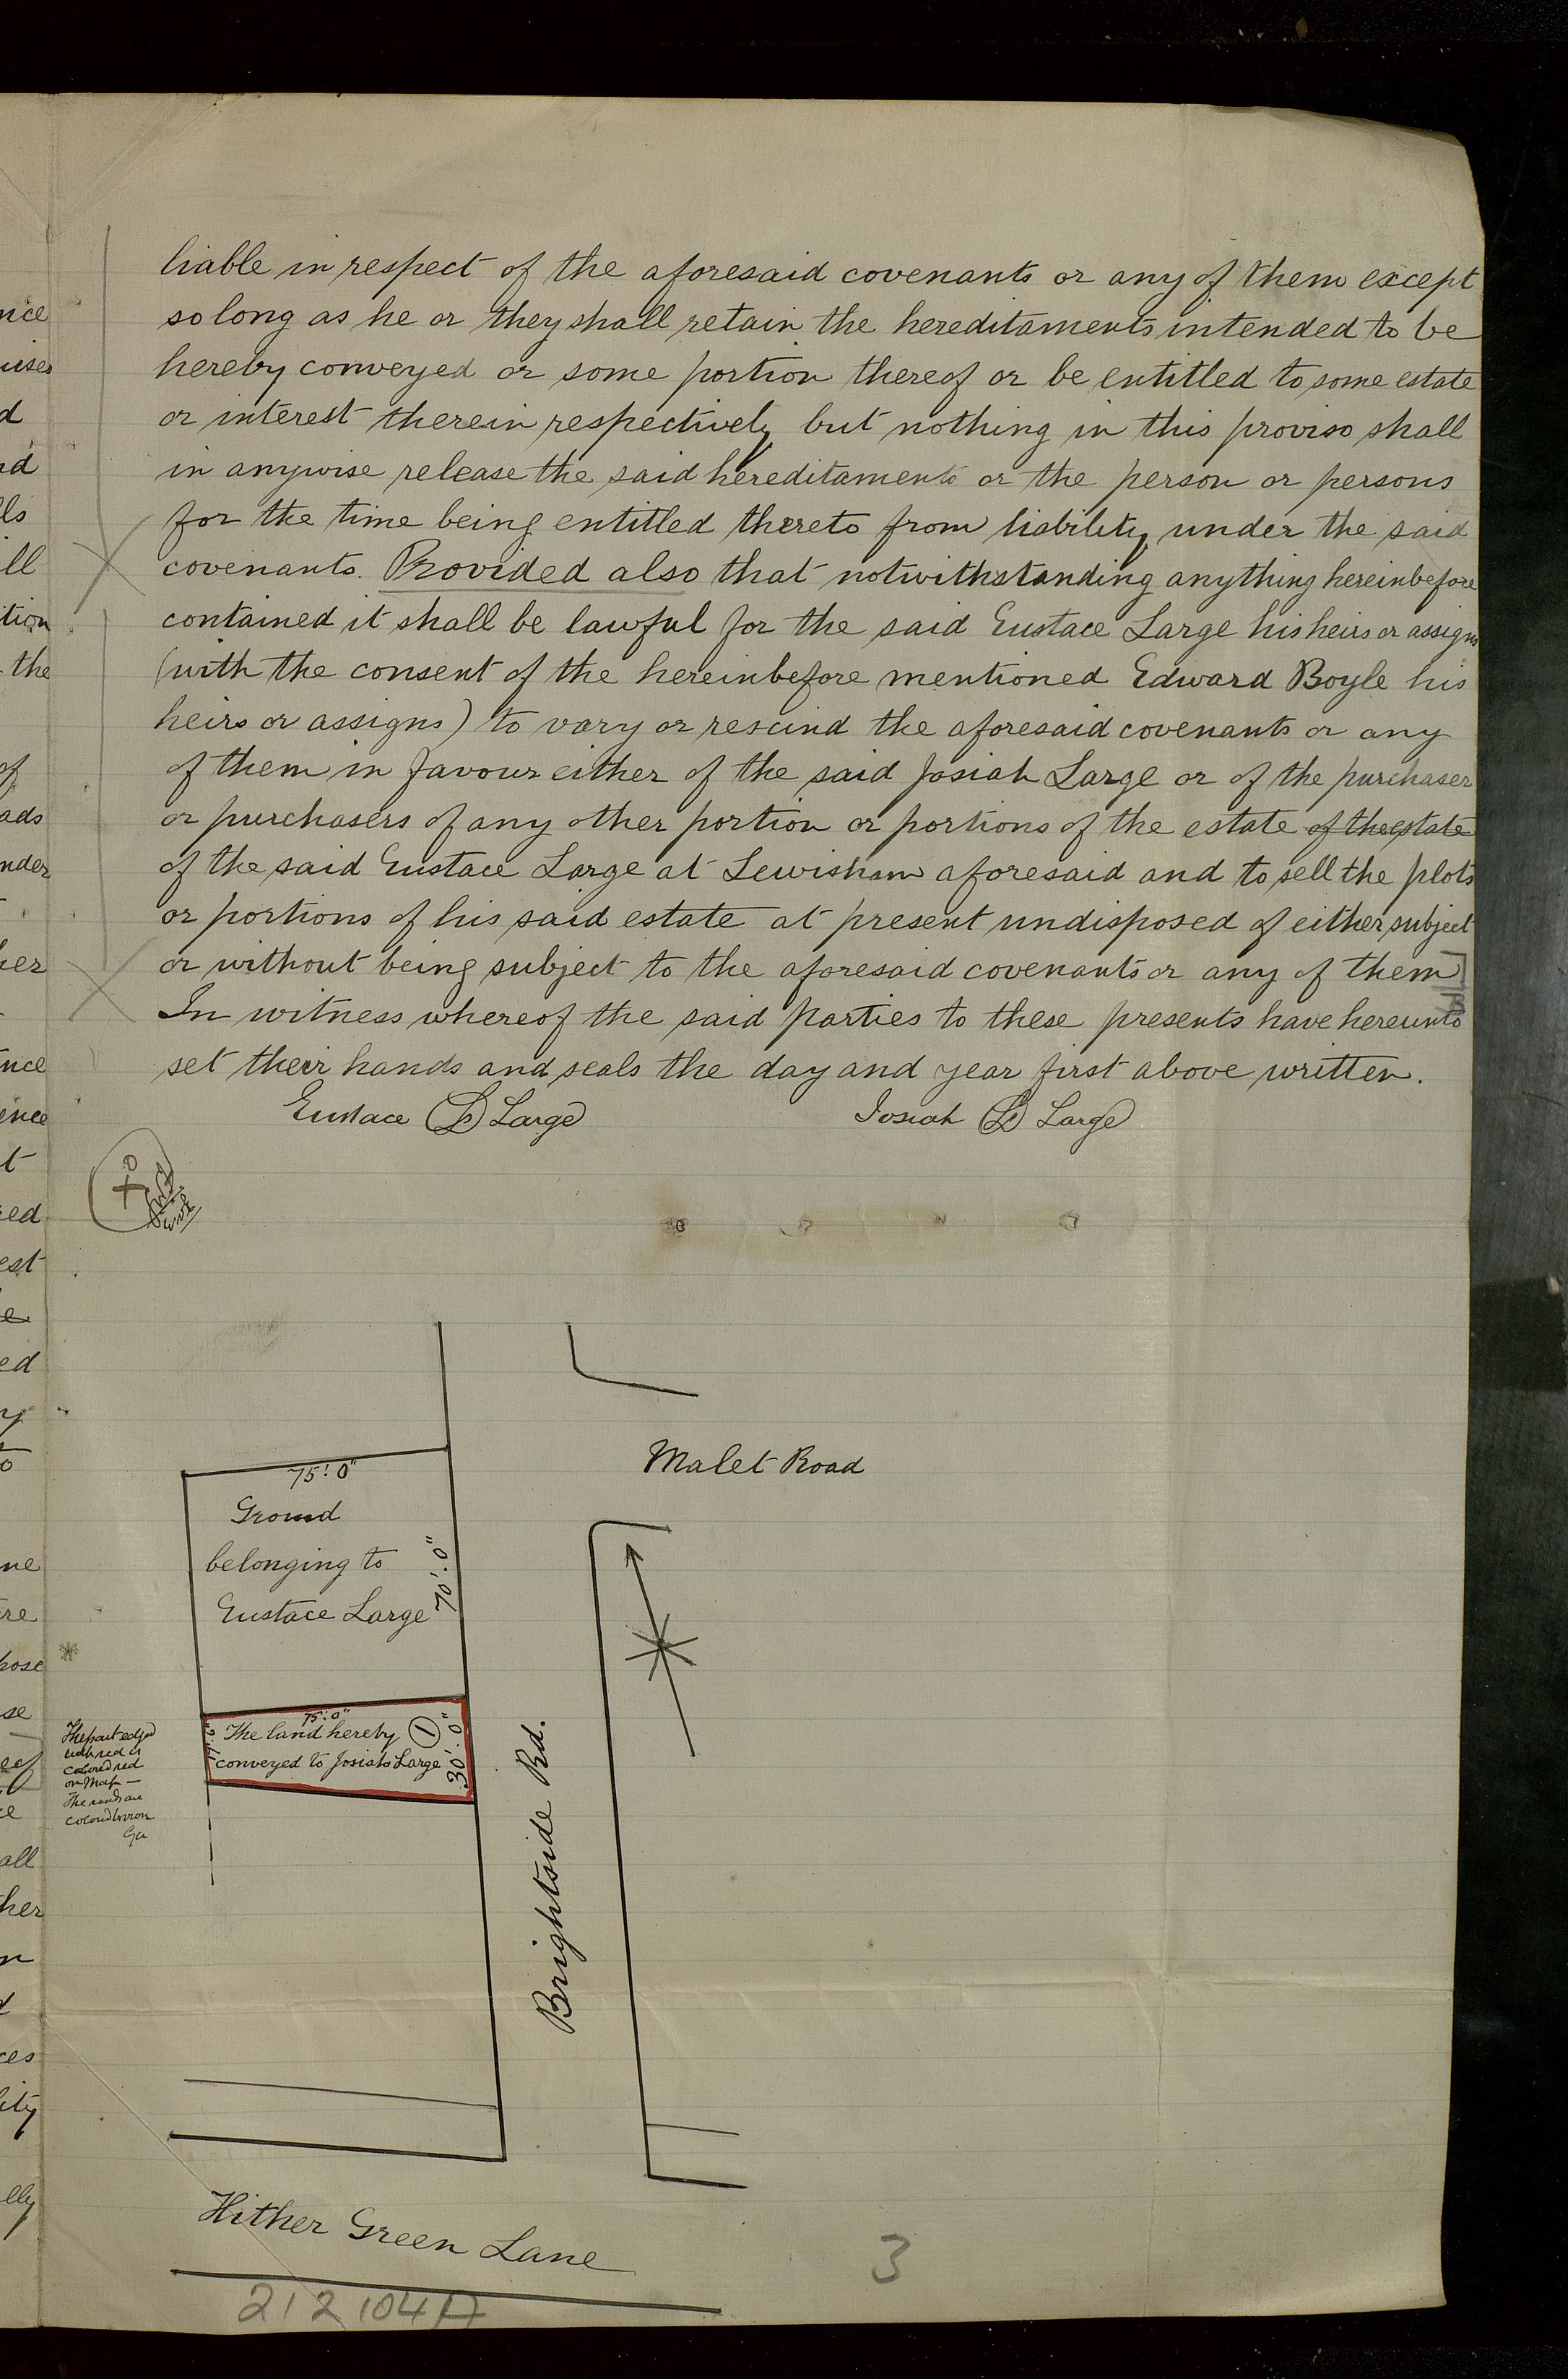 liable in respect of the aforesaid covenants or any of them except
so long as he or they shall retain the hereditaments intended to be
hereby conveyed or some portion thereof or be entitled to some estate
or interest therein respectively but nothing in this proviso shall
in anywise release the said hereditaments or the person or persons
for the time being entitled thereto from liability under the said
covenants. Provided also that notwithstanding anything hereinbefore
contained it shall be lawful for the said Eustace Large his heirs or assigns
(with the consent of the hereinbefore mentioned Edward Boyle his
heirs or assigns) to vary or rescind the aforesaid covenants or any
of them in favour either of the said Josiah Large or of the purchaser
or purchasers of any other portion or portions of the estate of the estate
of the said Eustace Large at Lewisham aforesaid and to sell the plots
or portions of his said estate at present undisposed of either subject
or without being subject to the aforesaid covenants or any of them
In witness whereof the said parties to these presents have hereunto
set their hands and seals the day and year first above written.
Eustace LS Large Josiah LS Large
Malet Road
75'.0"
Ground
belonging to
Eustace Large
70'.0"
75'.0"
The land hereby 1
conveyed to Josiah Large
30'.0"
The part edged
with red is
colored red
on Map —
The roads are
colored brown
Brightside Rd.
Hither Green Lane
3
212104A